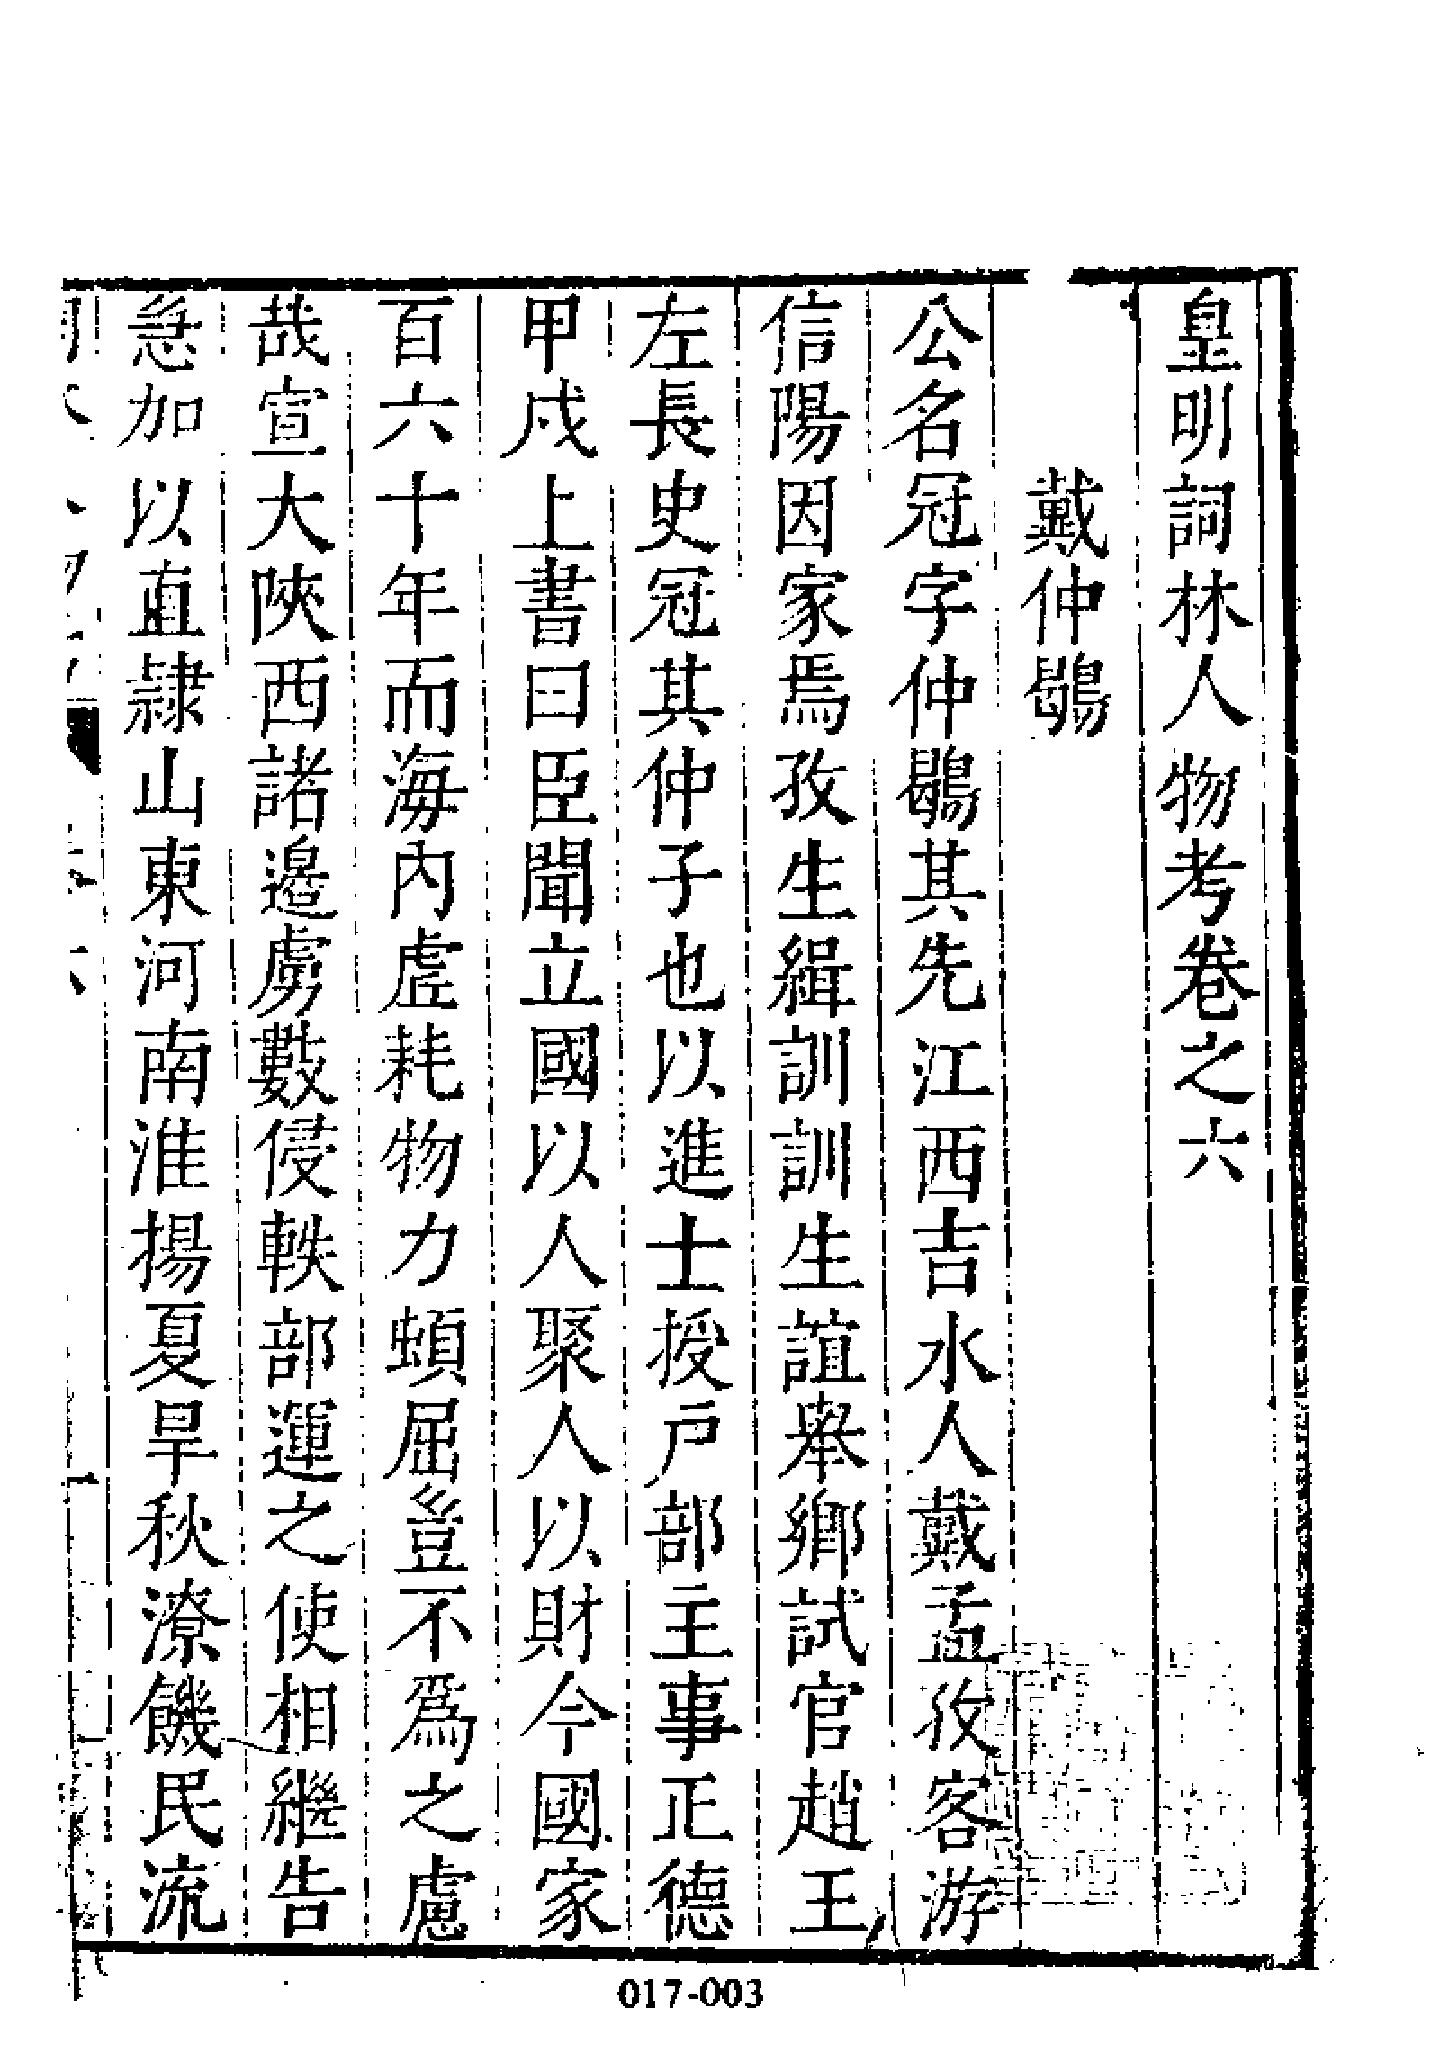 皇明詞林人物考卷之六
戴仲鶡
公名冠字仲鶡其先江西吉水人戴孟孜客游
信陽因家焉孜生緝訓訓生誼舉鄉試官趙王
左長史冠其仲子也以進士授戶部主事正德
甲戌上書曰臣聞立國以人聚人以財今國家
百六十年而海內虛耗物力頓屈豈不爲之慮
哉宣大陝西諸邊虜數侵軼部運之使相繼告
急加以直隸山東河南淮揚夏旱秋潦饑民流
017-003